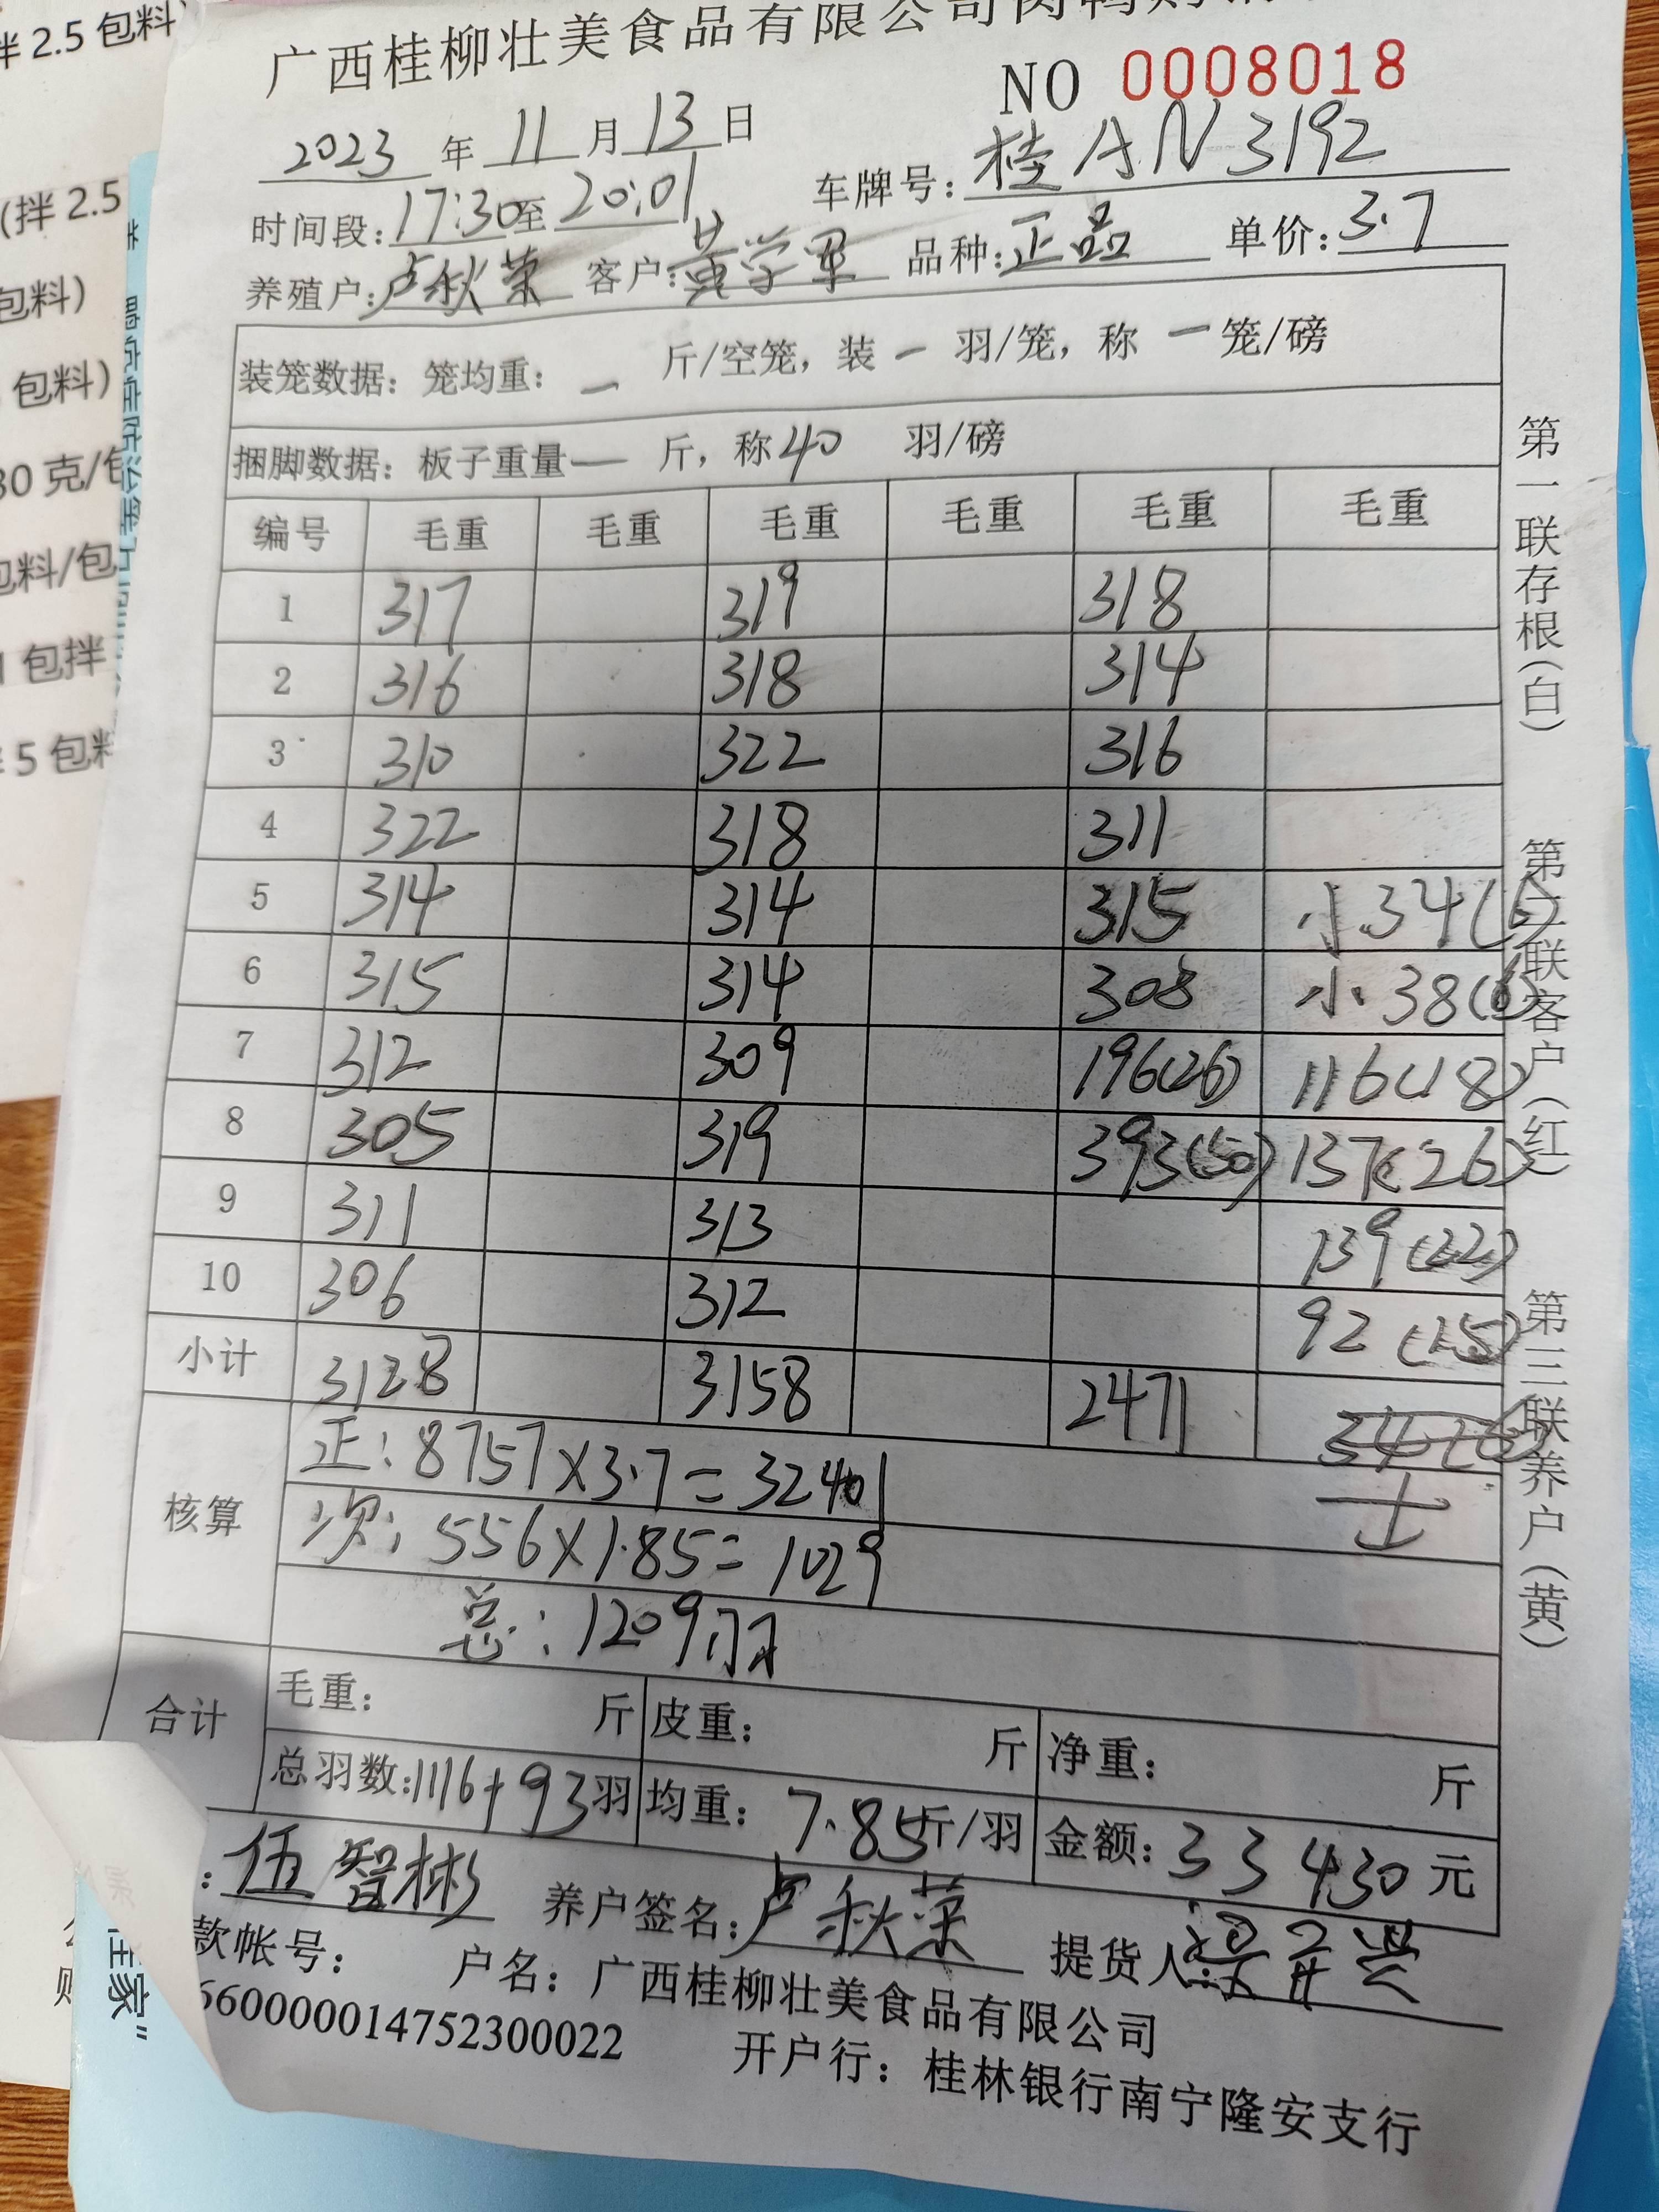 广西桂柳壮美食品有限公司肉鸭购销
NO 0008018
2023 年 11 月 13 日
车牌号: 桂AN3192
时间段: 17:30 至 20:01
养殖户: 卢秋荣 客户: 黄学军 品种: 正品 单价: 3.7
装笼数据: 笼均重: — 斤/空笼, 装 — 羽/笼, 称 一 笼/磅
捆脚数据: 板子重量 — 斤, 称 40 羽/磅
编号 毛重 毛重 毛重 毛重 毛重 毛重
1 317 319 318
2 316 318 314
3 310 322 316
4 322 318 311
5 314 314 315 小34
6 315 314 308 小38(6)
7 312 309 196(26) 116(18)
8 305 319 393(50) 137(26)
9 311 313 139(22)
10 306 312 92(15)
小计 3128 3158 2471
核算 正: 8757×3.7=32401
次: 556×1.85=1029
总: 1209羽
合计 毛重: 斤 皮重: 斤 净重: 斤
总羽数: 1116+93 羽 均重: 7.85 斤/羽 金额: 33430 元
: 伍智彬 养户签名: 卢秋荣 提货人:
款帐号: 户名: 广西桂柳壮美食品有限公司
660000014752300022 开户行: 桂林银行南宁隆安支行
第一联存根(白) 第二联客户(红) 第三联养户(黄)
拌 2.5 包料
(拌 2.5
包料)
包料)
30 克/包
包料/包
1 包拌
5 包料